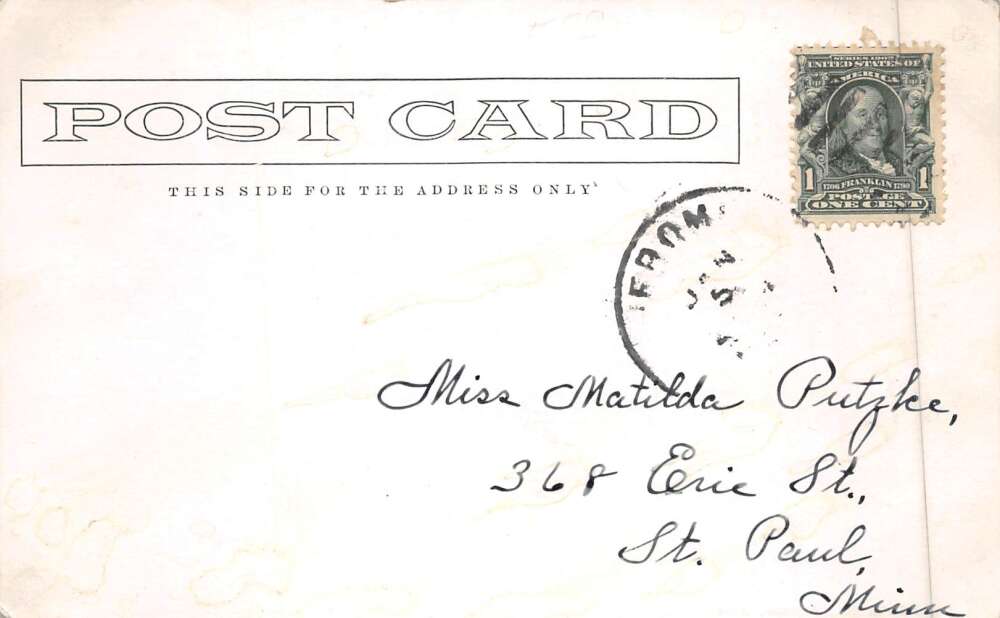 POST CARD
THIS SIDE FOR THE ADDRESS ONLY
SERIES 1902
UNITED STATES OF
AMERICA
1 1706 FRANKLIN 1790 1
POSTAGE
ONE CENT
FROM
JAN
5
Miss Matilda Putzke,
368 Erie St.,
St. Paul,
Minn